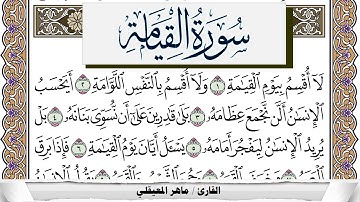 سُورَةُ القِيَامَةِ
لَآ أُقْسِمُ بِيَوْمِ ٱلْقِيَٰمَةِ ١ وَلَآ أُقْسِمُ بِٱلنَّفْسِ ٱللَّوَّامَةِ ٢ أَيَحْسَبُ
ٱلْإِنسَٰنُ أَلَّن نَّجْمَعَ عِظَامَهُۥ ٣ بَلَىٰ قَٰدِرِينَ عَلَىٰٓ أَن نُّسَوِّىَ بَنَانَهُۥ ٤ بَلْ
يُرِيدُ ٱلْإِنسَٰنُ لِيَفْجُرَ أَمَامَهُۥ ٥ يَسْـَٔلُ أَيَّانَ يَوْمُ ٱلْقِيَٰمَةِ ٦ فَإِذَا بَرِقَ
القارئ / ماهر المعيقلي